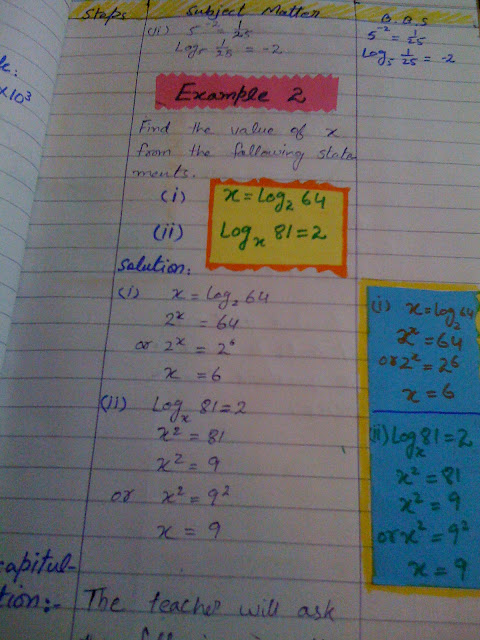 Steps
Subject Matter
B.B.S
(ii) 5⁻² = 1/25
Log₅ 1/25 = -2
5⁻² = 1/25
Log₅ 1/25 = -2
×10³
Example 2
Find the value of x
from the following state
ments.
(i) x = Log₂ 64
(ii) Logₓ 81 = 2
Solution:
(i) x = Log₂ 64
2ˣ = 64
or 2ˣ = 2⁶
x = 6
(ii) Logₓ 81 = 2
x² = 81
x² = 9
or x² = 9²
x = 9
(i) x = Log₂ 64
2ˣ = 64
or 2ˣ = 2⁶
x = 6
(ii) Logₓ 81 = 2
x² = 81
x² = 9
or x² = 9²
x = 9
capitul-
tion:-
The teacher will ask